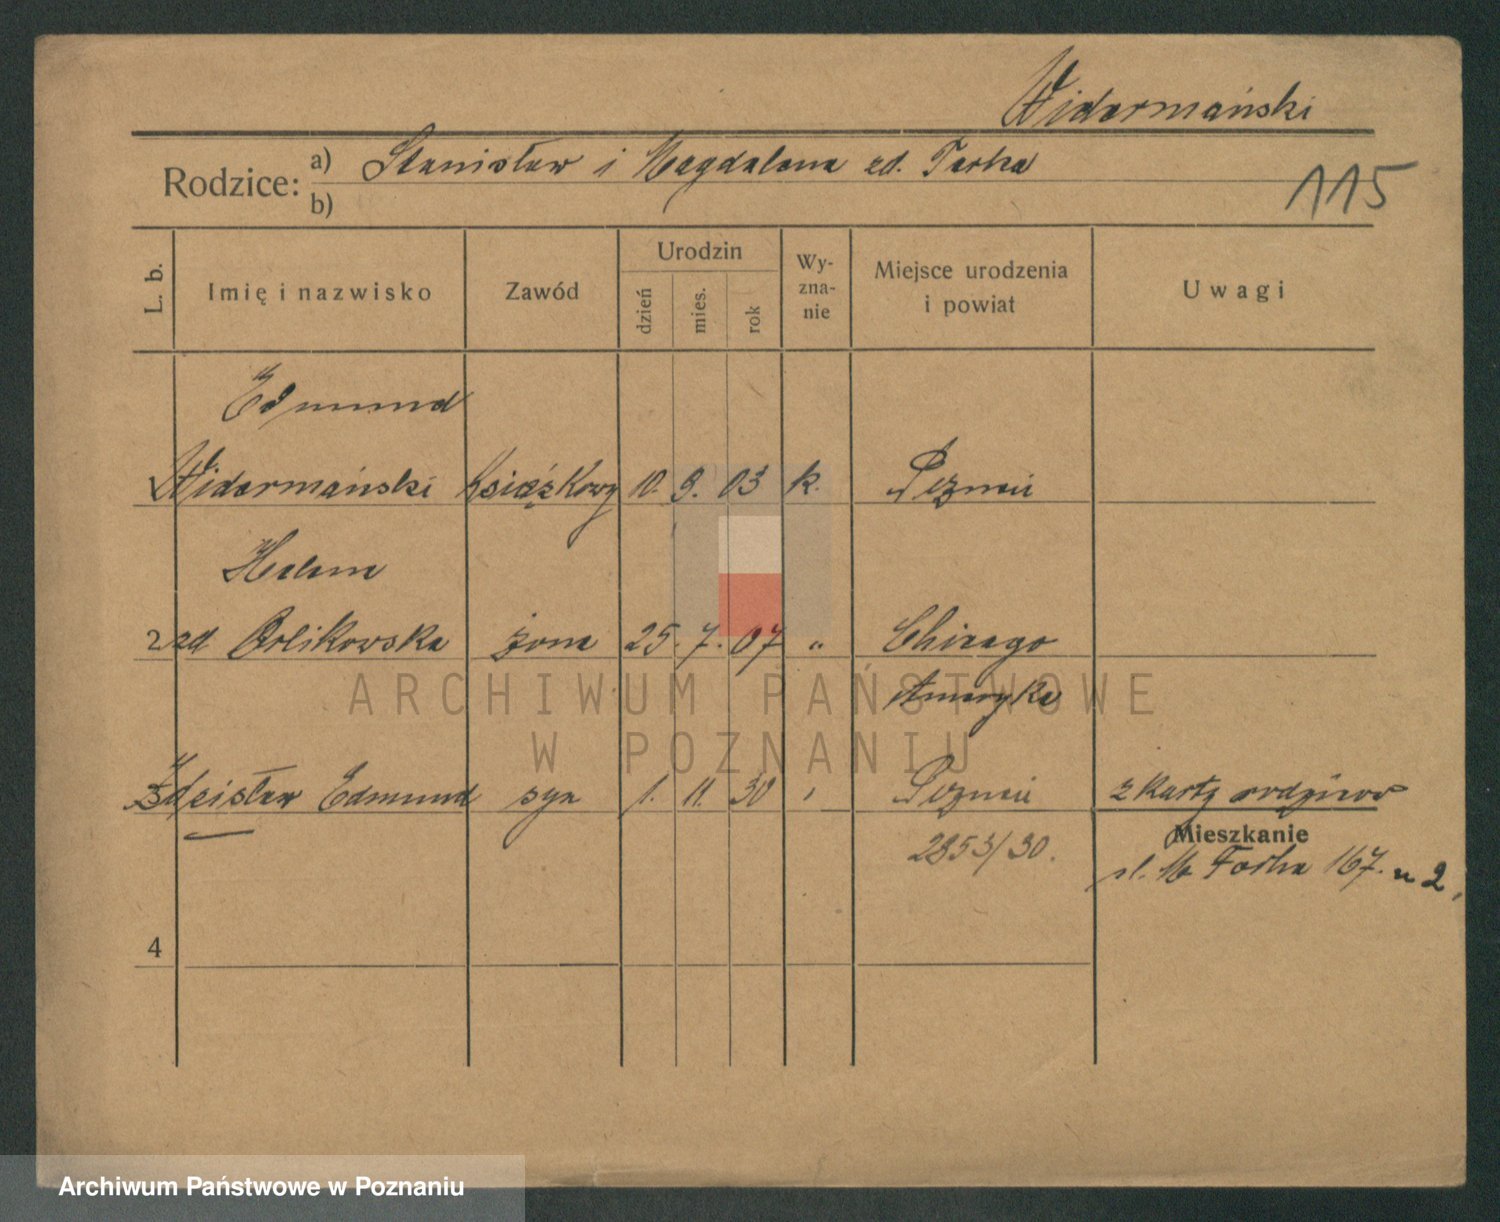 Widermański
Rodzice: a) Stanisław i Magdalena zd. Taska
b)
115
L. b. Imię i nazwisko Zawód Urodzin dzień mies. rok Wyznanie Miejsce urodzenia i powiat Uwagi
Edmund
1 Widermański Książkowy 10. 9. 03 k. Poznań
Helena
2 zd Orlikowska żona 25. 7. 07 " Chicago
Ameryka
ARCHIWUM PAŃSTWOWE
W POZNANIU
3 Zdzisław Edmund syn 1. 11. 30 " Poznań z karty rodziców
Mieszkanie
2853/30.
pl. M. Focha 167. m 2.
4
Archiwum Państwowe w Poznaniu